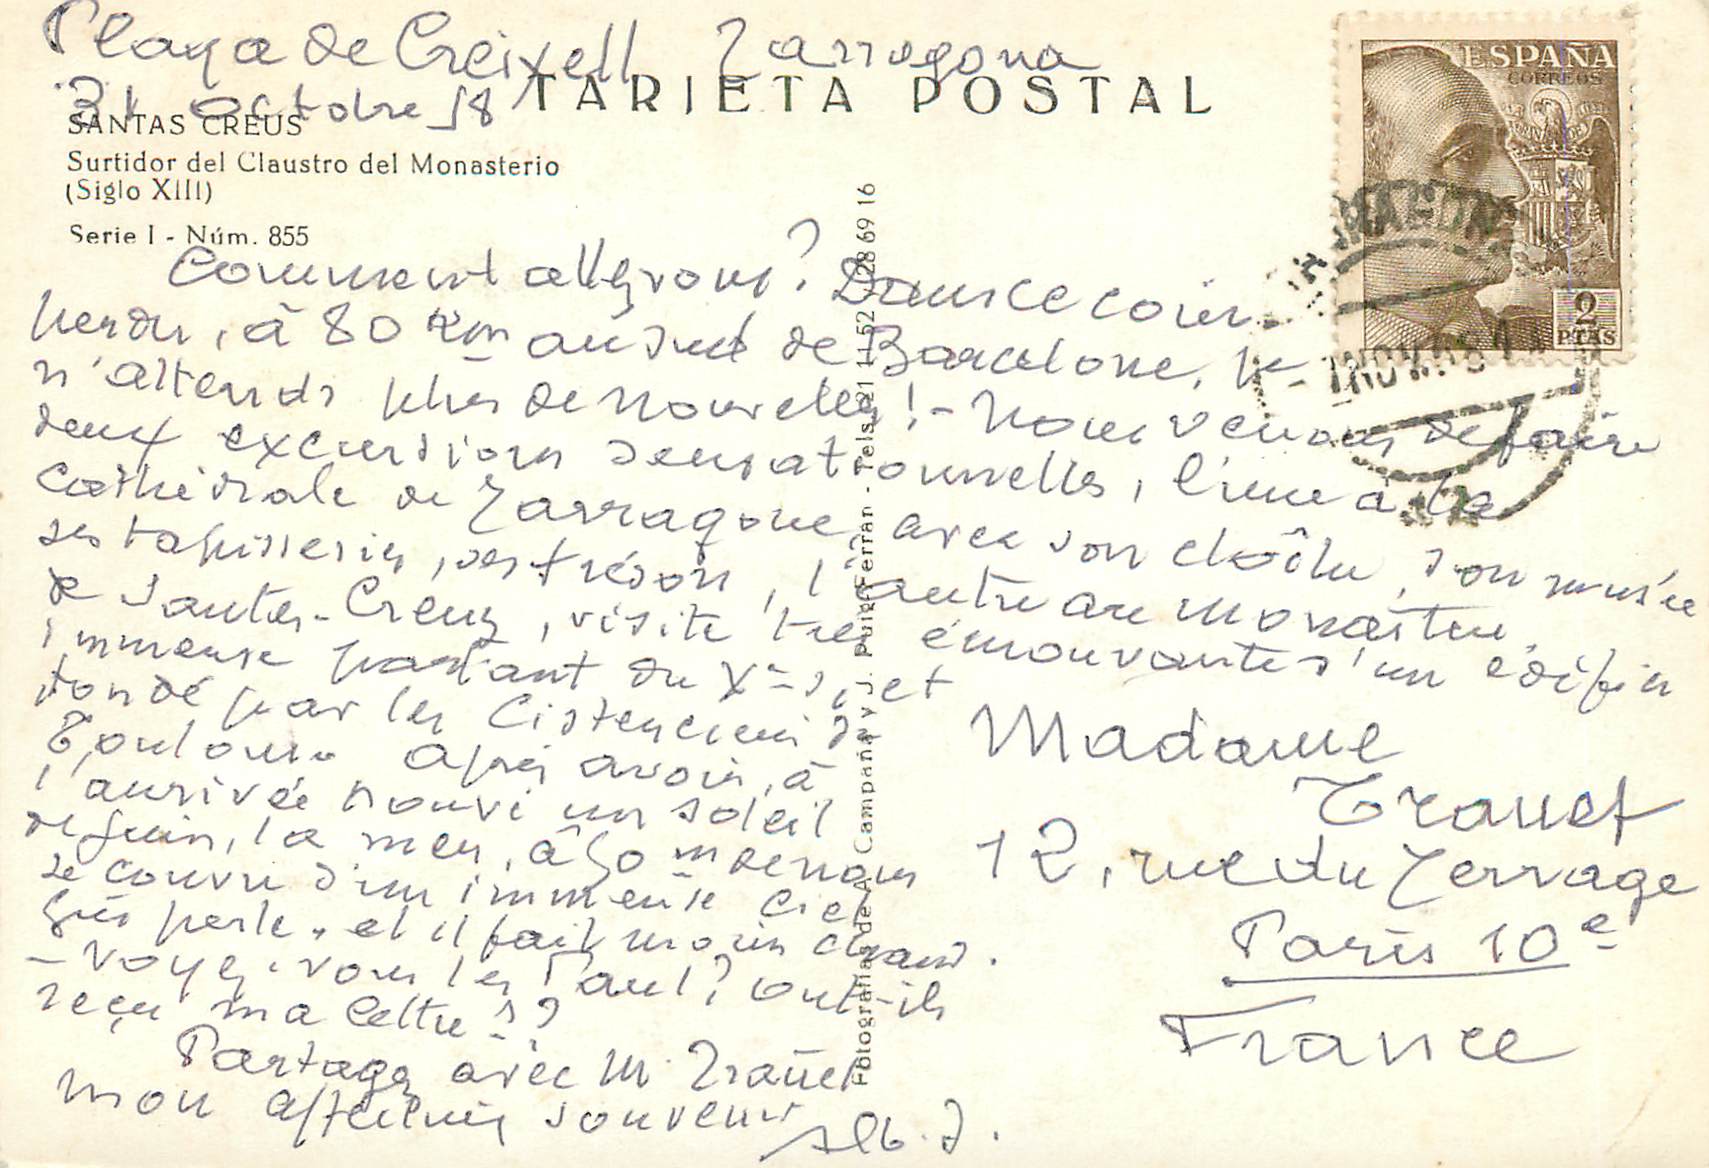 Playa de Creixell Tarragona
31 octobre 58
TARJETA POSTAL
SANTAS CREUS
Surtidor del Claustro del Monasterio
(Siglo XIII)
Serie I - Núm. 855
ESPAÑA
CORREOS
2
PTAS
Comment allez vous? Dans ce coin
perdu, à 80 km au sud de Barcelone, je
n'attends plus de nouvelles! - Nous venons de faire
deux excursions sensationnelles, l'une à la
Cathédrale de Tarragone, avec son cloître, son musée
ses tapisseries, ses trésors, l'autre au monastère
de Santes-Creus, visite très émouvante d'un édifice
immense partant du X e s, et
fondé par les Cisterciens de
Toulouse. Après avoir, à
l'arrivée un soleil
de juin, la mer, à 50 m de nous
se couvre d'un immense ciel
gris perle, et il fait moins chaud.
- Voyez-vous les Paul? ont-ils
reçu ma lettre??
Partagez avec M. Trauet
mon affectueux souvenir
Alb. J.
Fotografías de A. Campañá y J. Puig Ferrán - Tels. 21 11 52 / 28 69 16
Madame
Trauet
12, rue du Terrage
Paris 10e
France